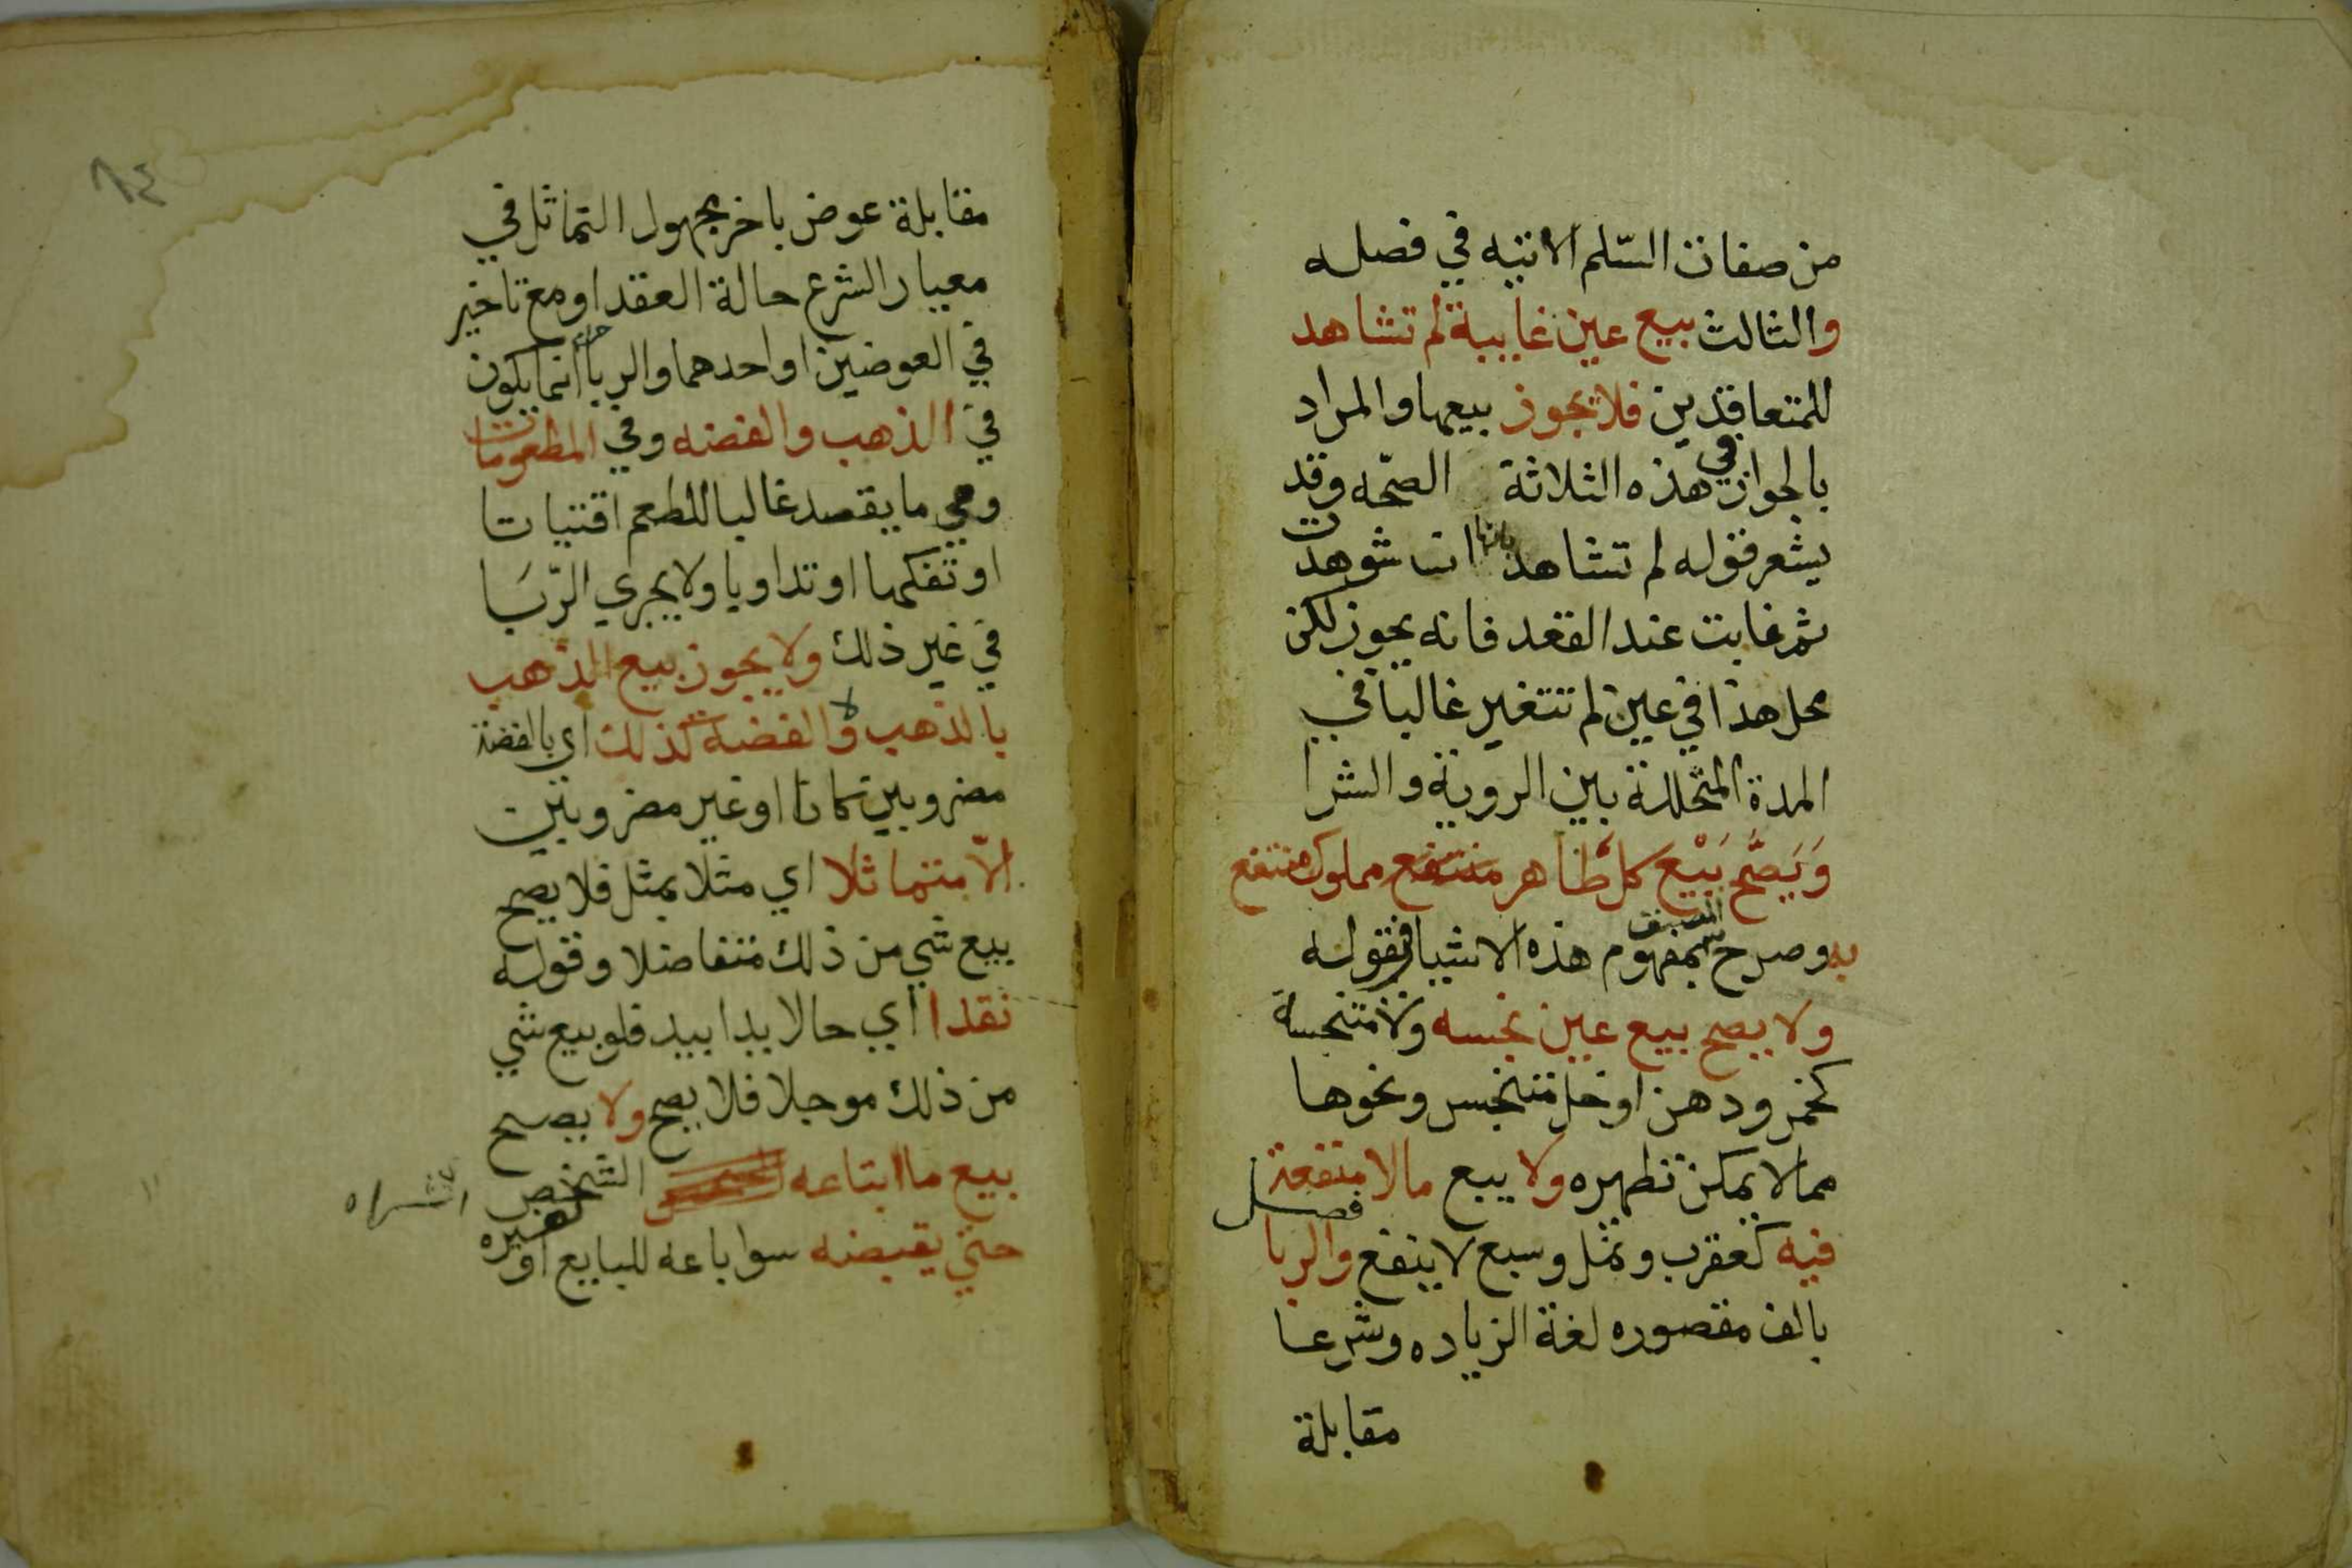 من صفات السّلم الاتيه في فصله
والثالث بيع عين غايبة لم تشاهد
للمتعاقدين فلا يجوز بيعها والمراد
بالجواز في هذه الثلاثة الصّحه وقد
يشعر قوله لم تشاهد بانها ان شوهدت
ثم غابت عند القعد فانه يجوز لكن
محل هذا في عين لم تتغير غالبا في
المدة المتخللة بين الروية والشرا
وَيَصَّح بَيْع كل طاهر منتفع مملوك منتفع
به وصرح المصنف بمفهوم هذه الاشيا فقوله
ولا يصح بيع عين نجسه ولا متنجسة
كخمر ودهن اوخل متنجس ونحوها
مما لا يمكن تطهره ولا بيع مالا منفعة
فصل
فيه كعقرب ونمل وسبع لا ينفع والربا
بالف مقصوره لغة الزياده وشرعا
مقابلة
٨٤
مقابلة عوض باخر مجهول التماثل في
معيار الشرع حالة العقد او مع تاخير
في العوضين او احدهما والربا حرام انما يكون
في الذهب والفضه وفي المطعومات
وهي ما يقصد غالبا للطعم اقتياتا
او تفكها او تداويا ولا يجري الرّبَا
في غير ذلك ولا يجوز بيع الذهب
بالذهب ولا الفضة كذلك اي بالفضة
مضروبين كانا او غير مضروبتين
الاّ متماثلا اي مثلا بمثل فلا يصح
بيع شي من ذلك متفاضلا وقوله
نقدا اي حالا يدا بيد فلو بيع شي
من ذلك موجلا فلا يصح ولا يصح
بيع ما ابتاعه الشخص
حتي يقبضه سوا باعه للبايع او لغيره